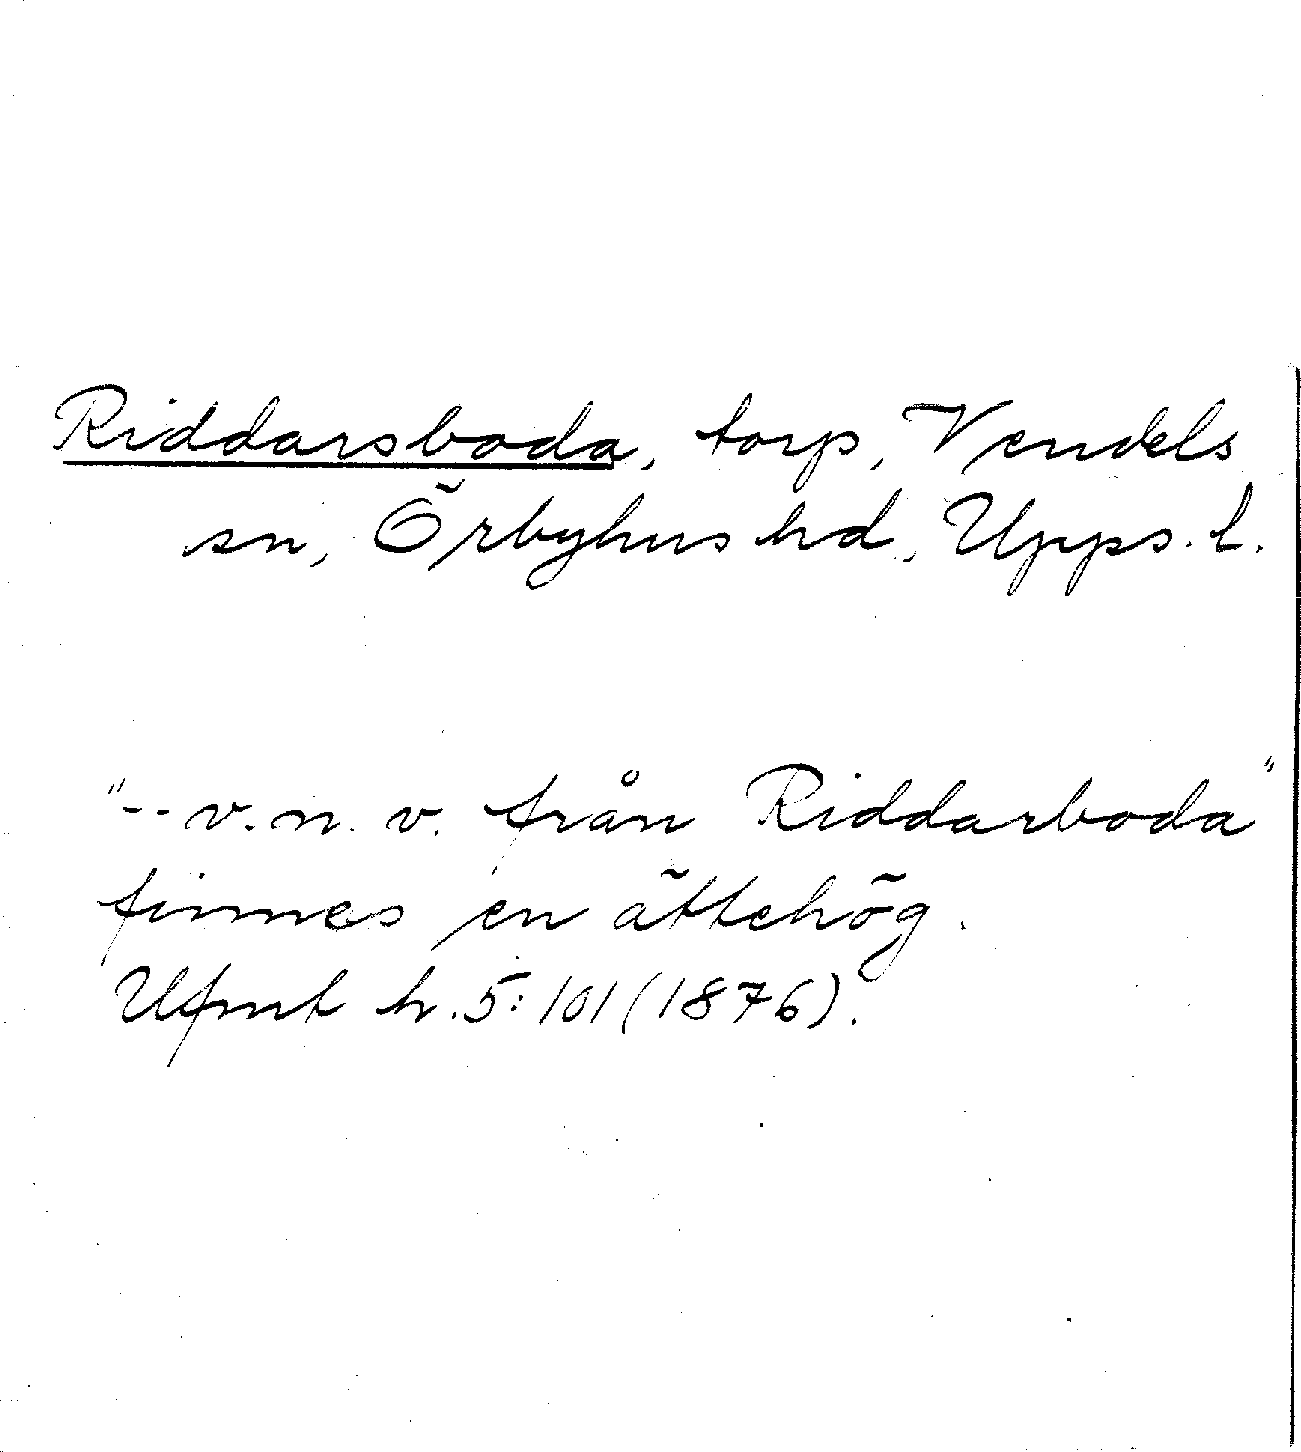 Riddarsboda, torp, Vendels
sn, Örbyhus hd, Upps. l.
"-- v. n. v. från Riddarboda"
finnes en ättehög.
Ufmt h. 5:101 (1876).